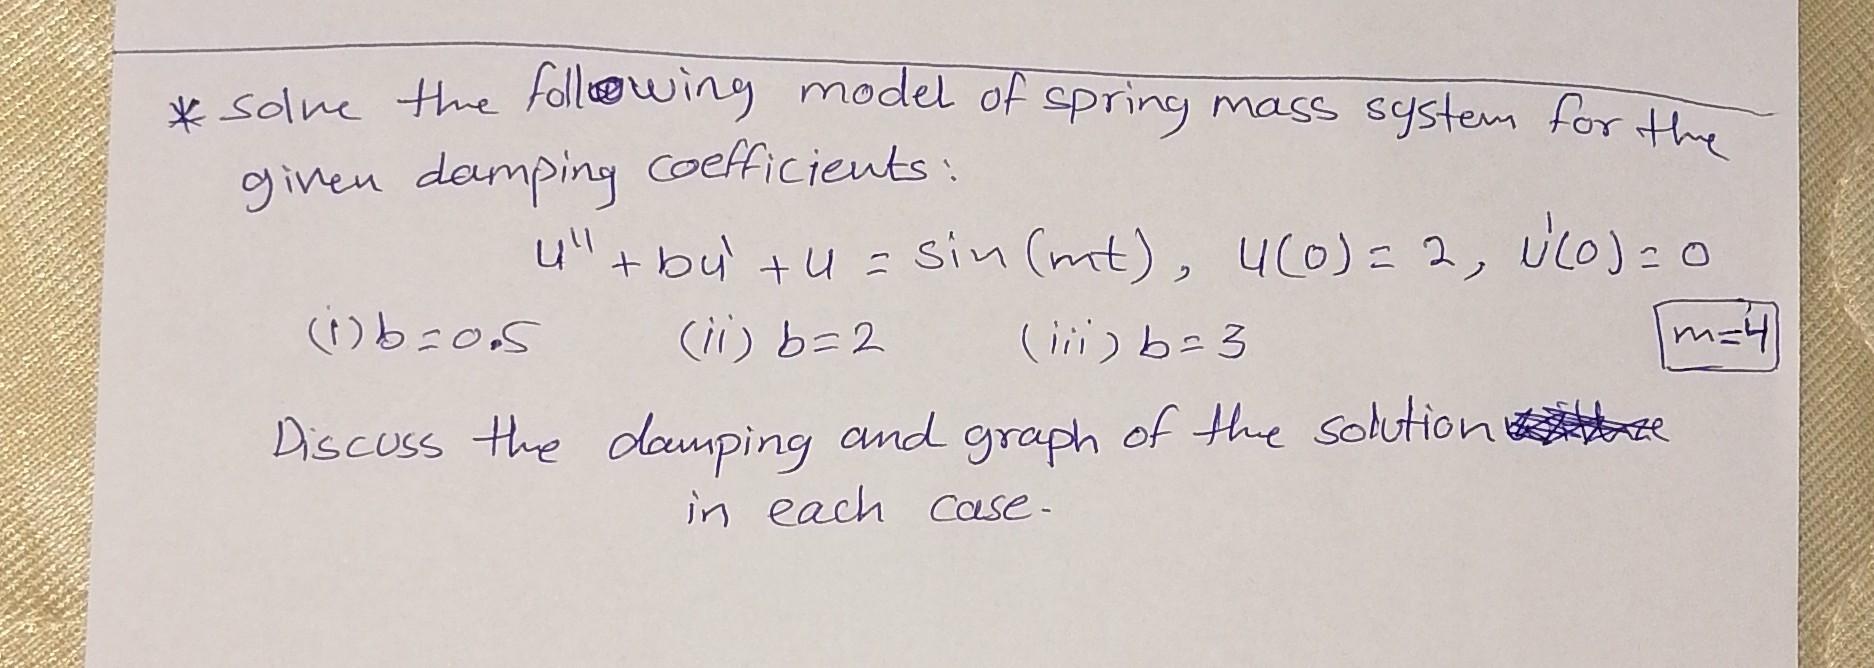 * Solve the following model of spring mass system for the
given damping coefficients:
u'' + bu' + u = sin(mt), u(0) = 2, u'(0) = 0
(i) b=0.5 (ii) b=2 (iii) b=3 m=4
Discuss the damping and graph of the solution
in each case.